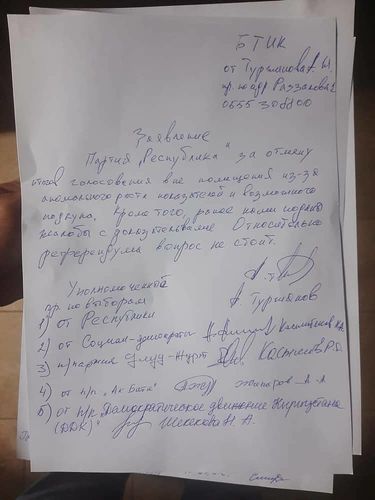 БТИК
от Турманова А. Ы.
пр. по адр Раззакова
0555 308800
Заявление
Партия „Республика" за отмену
итогов голосования вне помещения из-за
аномального роста показателей и возможного
подкупа, кроме того, ранее ними поданы
жалобы с доказательствами. Относительно
референдума вопрос не стоит.
Уполномоченный
пр. по выборам
1) от Республики А. Турманов
2) от Социал-демократы
3) п/партия Улуу-Журт
4) от п/п „Ак Бата" Жапаров А. А
5) от п/п „Демократическое движение Кыргызстана
(ДДК)" Шекекова Н. А.